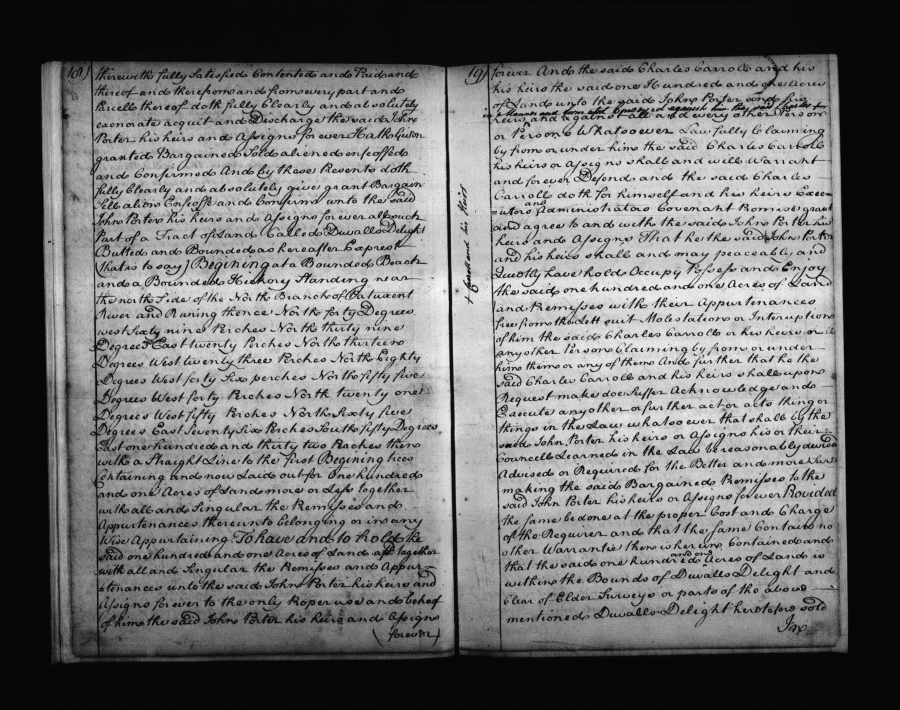 18)
therewith fully Satisfied Contented and Paid and
thereof and therefrom and from every part and
Parcell thereof doth fully Clearly and absolutely
exonerate acquit and Discharge the said John
Porter his heirs and Assigns for ever Hath Given
granted Bargained Sold aliened enfeoffed
and Confirmed And by these Presents doth
fully Clearly and absolutely give grant Bargain
Sell alien Enfeoffe and Confirm unto the said
John Porter his heirs and Assigns for ever all such
Part of a Tract of Land Called Duvalls Delight
Butted and Bounded as hereafter Exprest
(that is to say) Begining at a Bounded Beach
and a Bounded Hickory Standing near
the north Side of the North Branch of Patuxent
River and Runing thence North forty Degrees
west Sixty nine Perches North thirty nine
Degrees East twenty Perches North thirteen
Degrees West twenty three Perches North Eighty
Degrees West forty Six perches North fifty five
Degrees West forty Perches North twenty one
Degrees West fifty Perches North Sixty five
Degrees East Seventy Six Perches South fifty Degrees
East one hundred and thirty two Perches then
with a Straight Line to the first Begining trees
Containing and now Laid out for One hundred
and one Acres of Land more or Less together
with all and Singular the Premisses and
Appurtenances thereunto belonging or in any
Wise Appurtaining To have and to hold the
said one hundred and one Acres of Land together
with all and Singular the Premisses and Appur
tenances unto the said John Porter his heirs and
Assigns for ever to the only Proper use and behoof
of him the said John Porter his heirs and Assigns
(forever)
+ Carroll and his Heirs
19)
forever And the said Charles Carroll and his
his heirs the said one Hundred and one Acres
of Land unto the said John Porter and his
in Manner and form
heirs and against all and every other Person
or Persons Whatsoever Lawfully Claiming
by from or under him the said Charles Carroll
his heirs or Assigns Shall and will Warrant
and forever Defend and the said Charles
Carroll doth for himself and his heirs Exec
utors and Administrators Covenant Promise grant
and agree to and with the said John Porter his
heirs and Assigns That he the said John Porter
and his heirs shall and may peaceably and
Quietly have hold Occupy Possess and Enjoy
the said one hundred and one Acres of Land
and Premisses with their Appurtenances
free from the Lett suit Molestation or Interruption
of him the said Charles Carroll or his heirs or
any other Person Claiming by from or under
him them or any of them And further that he the
said Charles Carroll and his heirs shall upon
Request make doe Suffer Acknowledge and
Execute any other or further act or acts thing or
things in the Law whatsoever that shall by the
said John Porter his heirs or Assigns his or their
Councell Learned in the Law be reasonably devised
Advised or Required for the Better and more Sure
making the said Bargained Premisses to the
said John Porter his heirs or Assigns forever Provided
the same be done at the proper Cost and Charge
of the Requirer and that the same Contain no
other Warrantie then is herein Contained and
that the said one hundred and one Acres of Land is
within the Bounds of Duvalls Delight and
Clear of Elder Surveys or parts of the above
mentioned Duvalls Delight heretofore sold